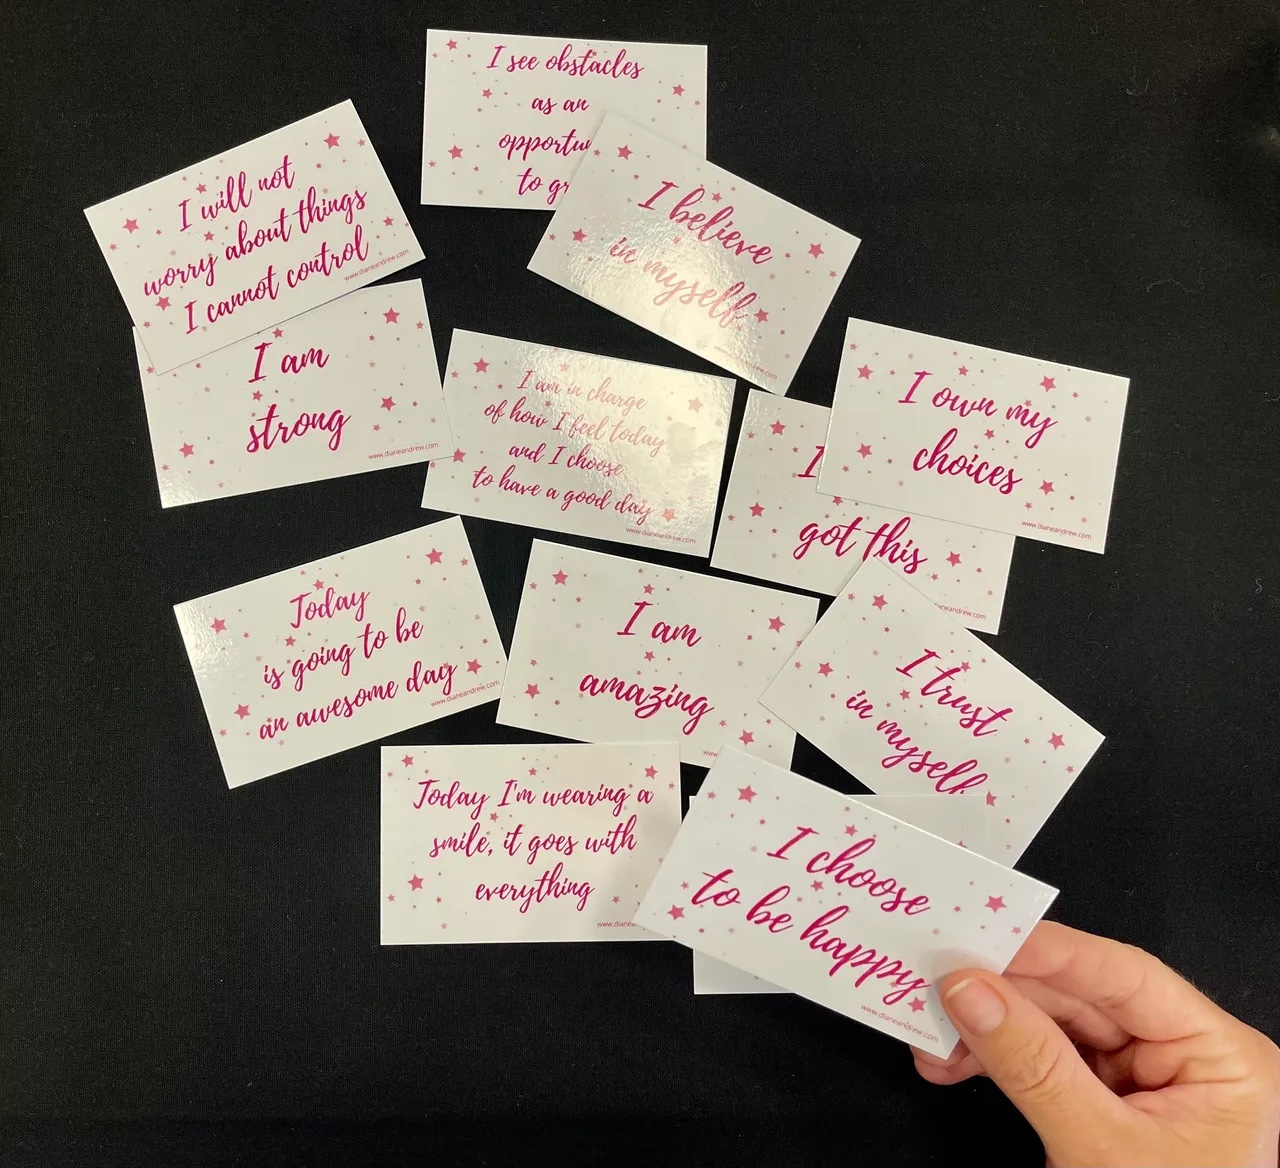 I see obstacles
as an
to
I will not
worry about things
I cannot control
www.dianeandrew.com
I believe
in myself
www.dianeandrew.com
I am
strong
www.dianeandrew.com
I am in charge
of how I feel today
and I choose
to have a good day
www.dianeandrew.com
I own my
choices
www.dianeandrew.com
I
got this
Today
is going to be
an awesome day
www.dianeandrew.com
I am
amazing
I trust
in myself
Today I'm wearing a
smile, it goes with
everything
I choose
to be happy
www.dianeandrew.com